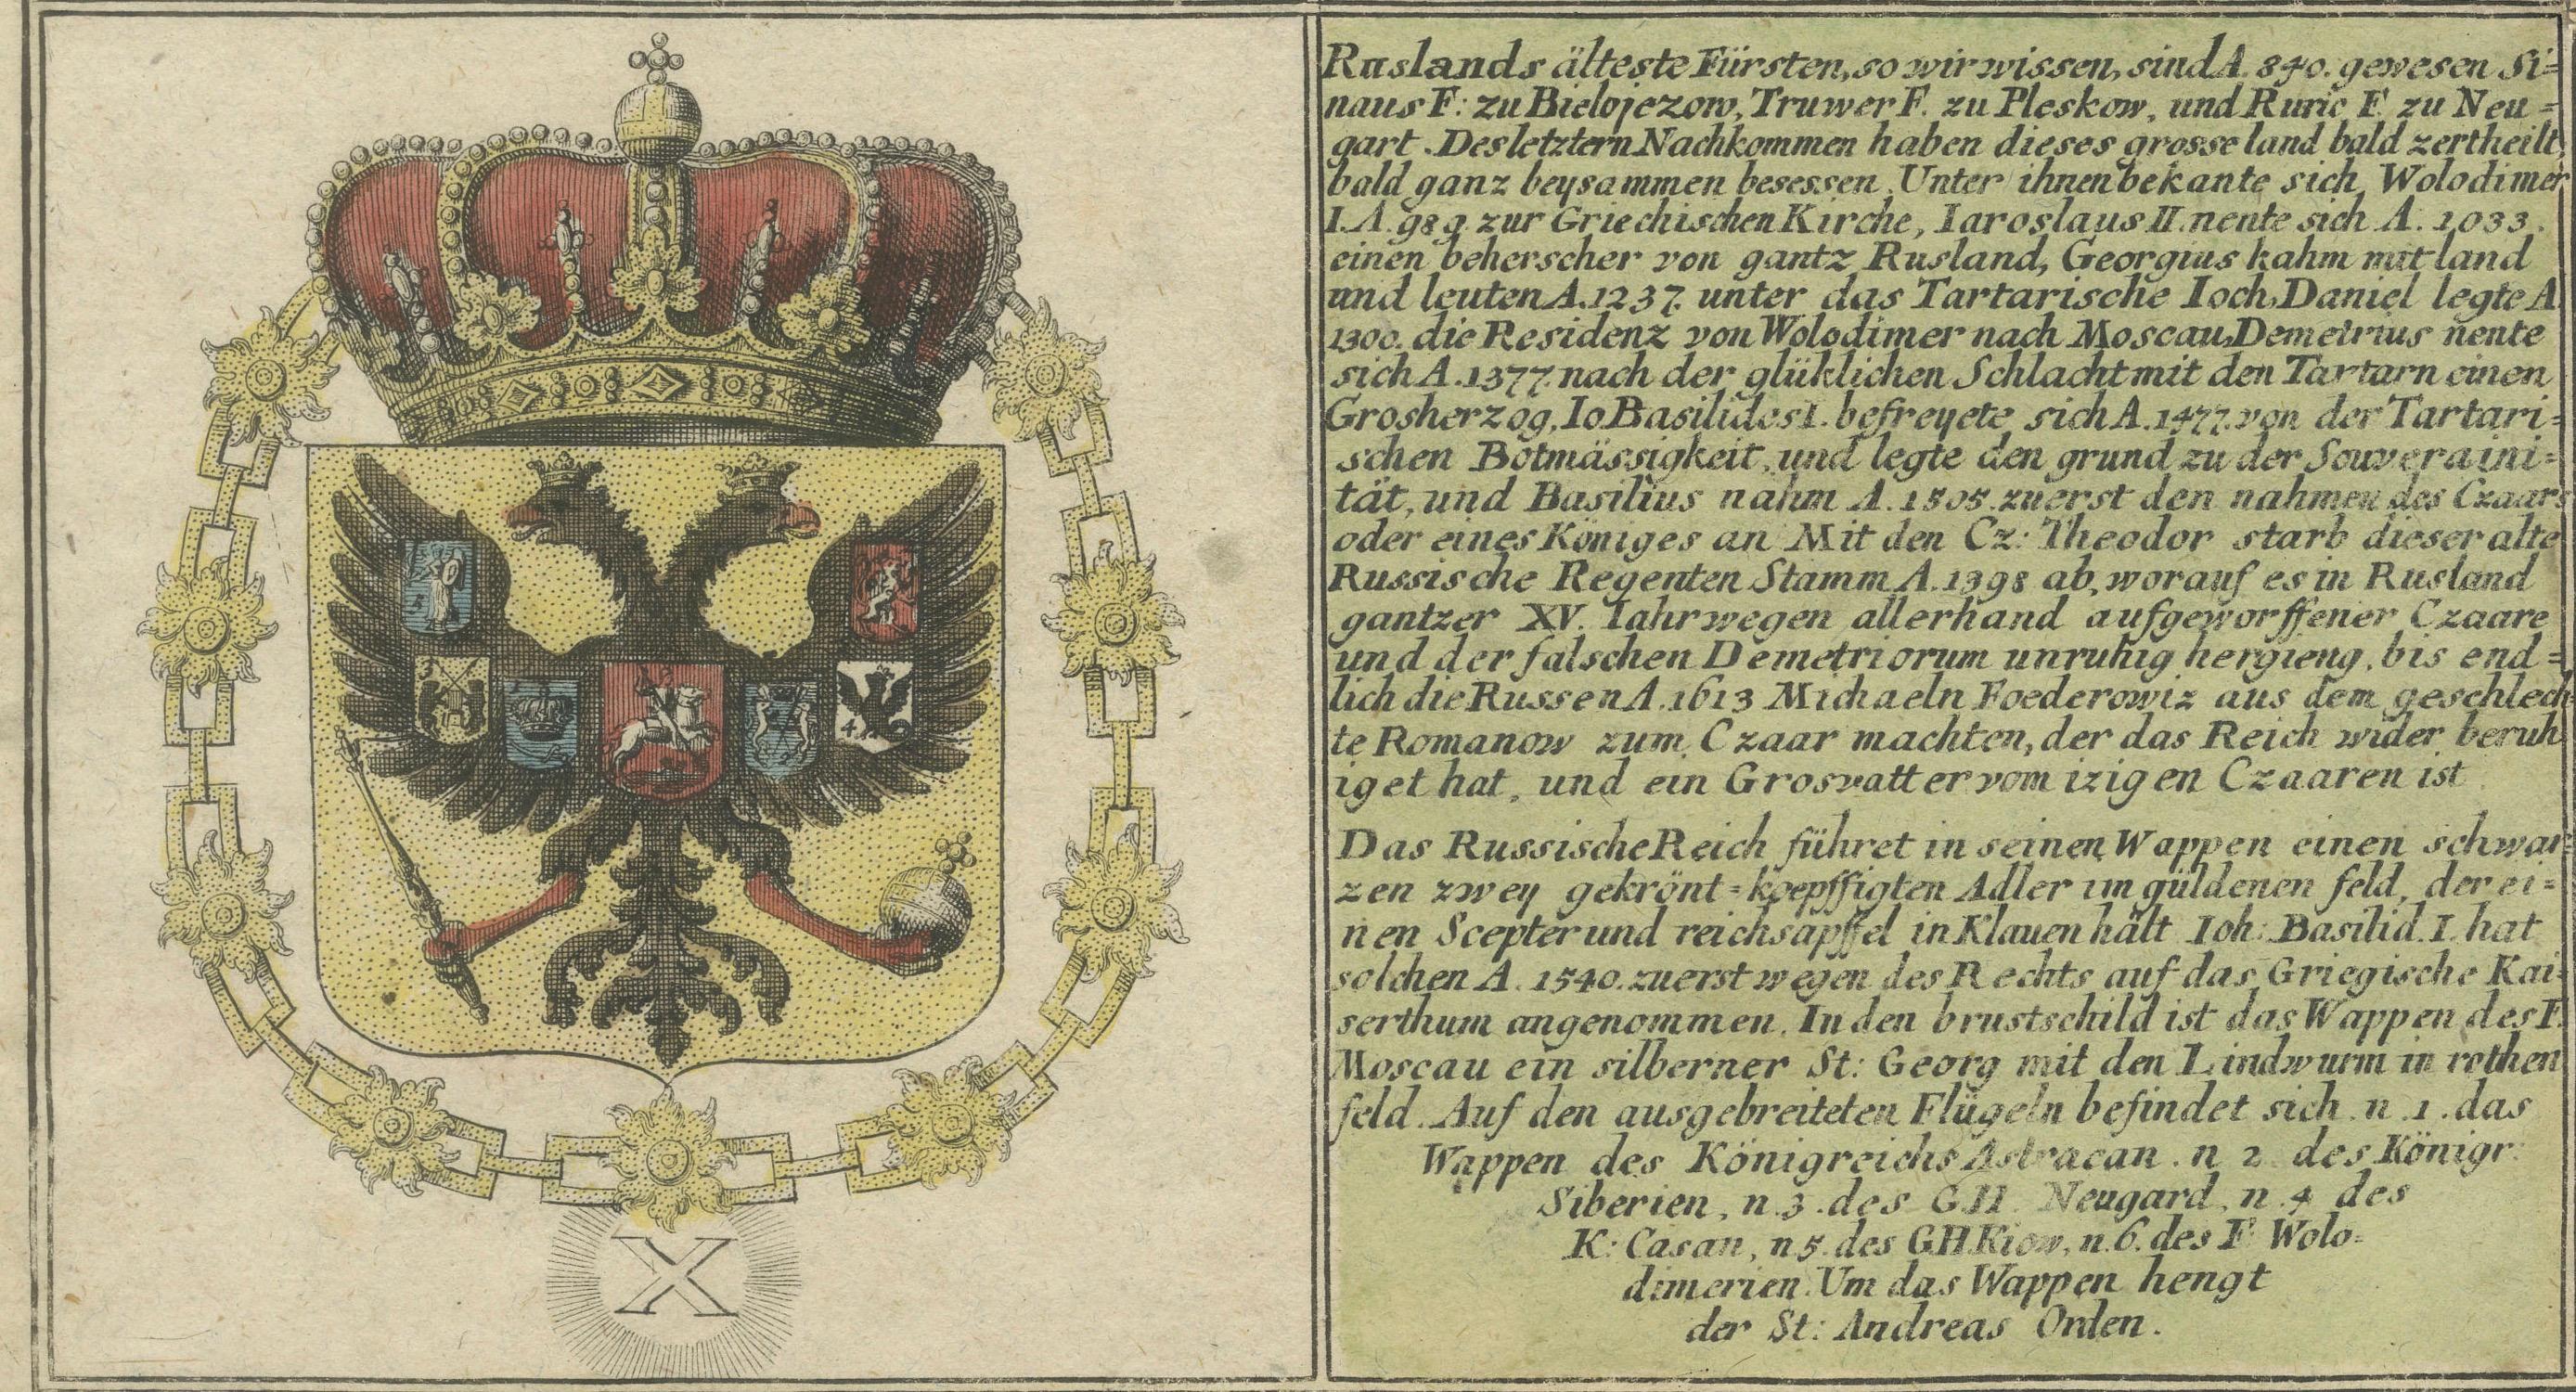 3
1
4
2
5
X
Ruslands älteste Fürsten, so wir wissen, sind A. 840. gewesen Si=
naus F: zu Bielojezow, Truwer F. zu Pleskow, und Ruric F. zu Neu=
gart. Des letztern Nachkommen haben dieses grosse land bald zertheilt,
bald ganz beysammen besessen. Unter ihnen bekante sich Wolodimer
I. A. 989. zur Griechischen Kirche, Iaroslaus II. nente sich A. 1033.
einen beherscher von gantz Rusland, Georgius kahm mit land
und leuten A. 1237. unter das Tartarische Ioch, Daniel legte A.
1300. die Residenz von Wolodimer nach Moscau, Demetrius nente
sich A. 1377. nach der glüklichen Schlacht mit den Tartarn einen
Grosherzog, Io Basilides I. befreyete sich A. 1477. von der Tartari=
schen Botmässigkeit, und legte den grund zu der Souveraini=
tät, und Basilius nahm A. 1505. zuerst den nahmen des Czaars
oder eines Königes an Mit den Cz: Theodor starb dieser alte
Russische Regenten Stamm A. 1398 ab, worauf es in Rusland
gantzer XV. Iahr wegen allerhand aufgeworffener Czaare
und der falschen Demetriorum unruhig hergieng, bis end=
lich die Russen A. 1613 Michaeln Foederowiz aus dem geschlech
te Romanow zum Czaar machten, der das Reich wider beruh
iget hat, und ein Grosvatter vom izigen Czaaren ist.
Das Russische Reich führet in seinen Wappen einen schwar=
zen zwey gekrönt=koepffigten Adler im güldenen feld, der ei=
nen Scepter und reichsapffel in Klauen hält Ioh: Basilid. I. hat
solchen A. 1540. zuerst wegen des Rechts auf das Griegische Kai=
serthum angenommen. In den brustschild ist das Wappen des F.
Moscau ein silberner St: Georg mit den Lindwurm in rothen
feld. Auf den ausgebreiteten Flügeln befindet sich n. 1. das
Wappen des Königreichs Astracan. n 2. des Königr:
Siberien, n. 3. des G.H. Neugard, n. 4 des
K: Casan, n 5. des G.H. Kiow, n. 6. des F. Wolo=
dimerien. Um das Wappen hengt
der St: Andreas Orden.